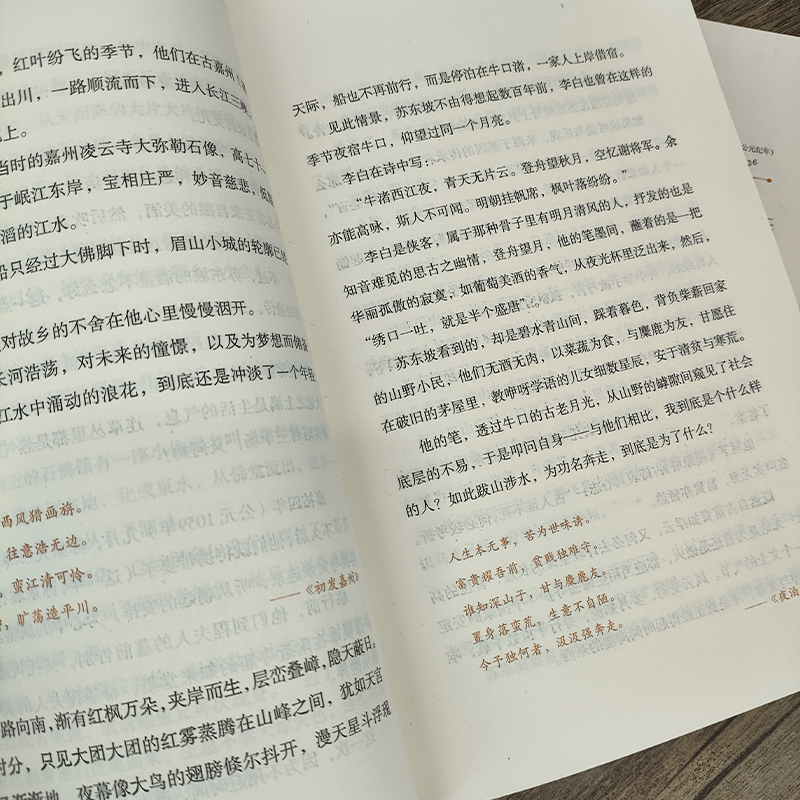 ，红叶纷飞的季节，他们在古嘉州（
出川，一路顺流而下，进入长江三峡
上。
当时的嘉州凌云寺大弥勒石像，高七十
于岷江东岸，宝相庄严，妙音慈悲，
滔的江水。
船只经过大佛脚下时，眉山小城的轮廓已
对故乡的不舍在他心里慢慢洇开。
长河浩荡，对未来的憧憬，以及为梦想而
江水中涌动的浪花，到底还是冲淡了一个年轻
西风猎画旗。
往意浩无边。
，蛮江清可怜。
，旷荡造平川。
——《初发嘉州》
路向南，渐有红枫万朵，夹岸而生，层峦叠嶂，隐天蔽日。
时分，只见大团大团的红雾蒸腾在山峰之间，犹如天宫
渐渐地，夜幕像大鸟的翅膀倏尔抖开，漫天星斗浮现
天际，船也不再前行，而是停泊在牛口渚，一家人上岸借宿。
见此情景，苏东坡不由得想起数百年前，李白也曾在这样的
季节夜宿牛口，仰望过同一个月亮。
李白在诗中写：
“牛渚西江夜，青天无片云。登舟望秋月，空忆谢将军。余
亦能高咏，斯人不可闻。明朝挂帆席，枫叶落纷纷。”
李白是侠客，属于那种骨子里有明月清风的人，抒发的也是
知音难觅的思古之幽情，登舟望月，他的笔墨间，蘸着的是一把
华丽孤傲的寂寞，如葡萄美酒的香气，从夜光杯里泛出来，然后，
“绣口一吐，就是半个盛唐”。
苏东坡看到的，却是碧水青山间，踩着暮色，背负柴薪回家
的山野小民，他们无酒无肉，以菜蔬为食，与麋鹿为友，甘愿住
在破旧的茅屋里，教咿呀学语的儿女细数星辰，安于清贫与寒荒。
他的笔，透过牛口的古老月光，从山野的罅隙间窥见了社会
底层的不易，于是叩问自身——与他们相比，我到底是个什么样
的人？如此跋山涉水，为功名奔走，到底是为了什么？
人生本无事，苦为世味诱。
富贵耀吾前，贫贱独难守。
谁知深山子，甘与麋鹿友。
置身落蛮荒，生意不自陋。
今予独何者，汲汲强奔走。
——《夜泊
公元纪年》
36